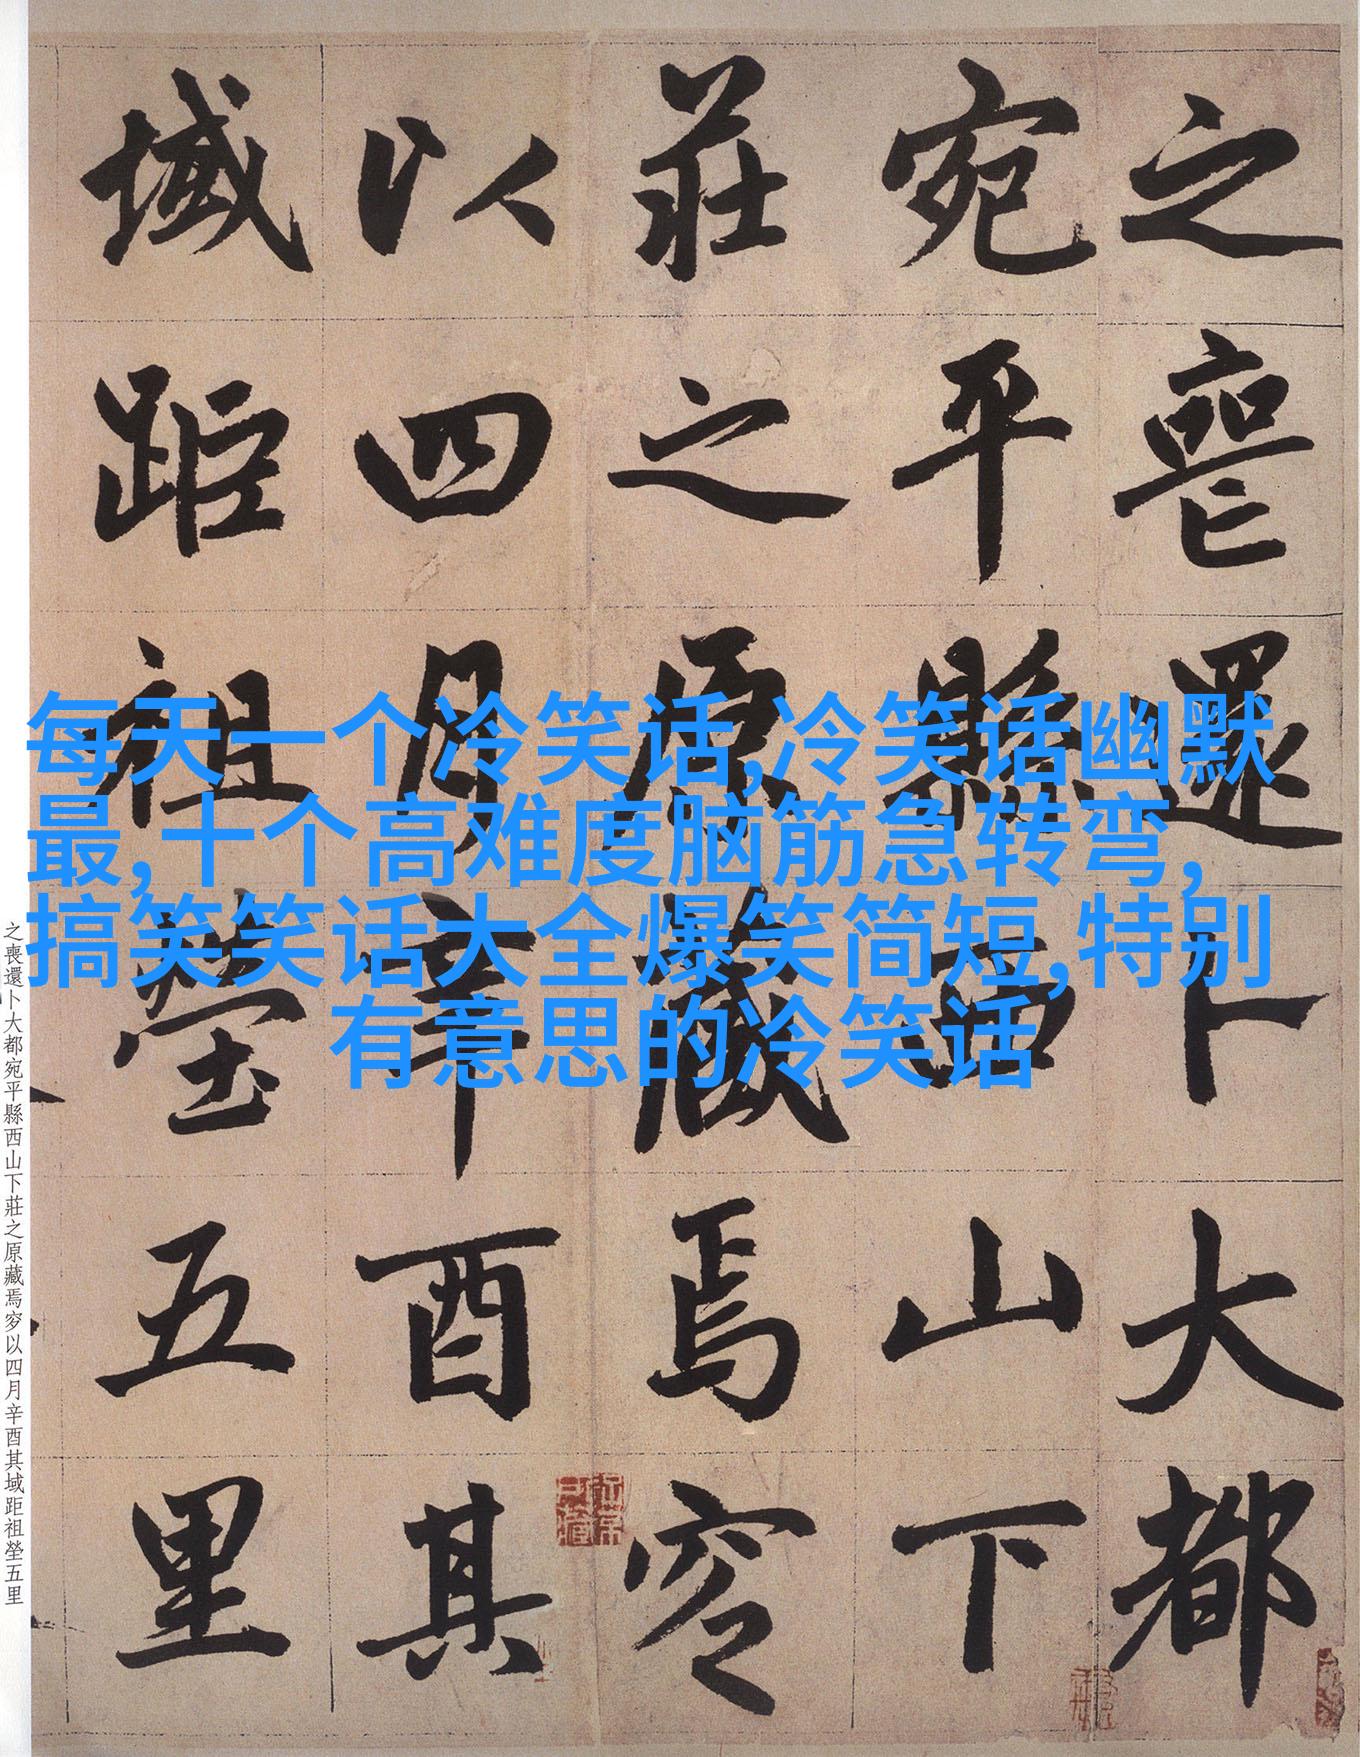 之喪還卜大都
宛平縣西山下
莊之原藏焉窆
以四月辛酉其
域距祖塋五里
每天一个冷笑话,冷笑话幽默
最,十个高难度脑筋急转弯,
搞笑笑话大全爆笑简短,特别
有意思的冷笑话
之喪還卜大都宛平縣西山下莊之原藏焉窆以四月辛酉其域距祖塋五里